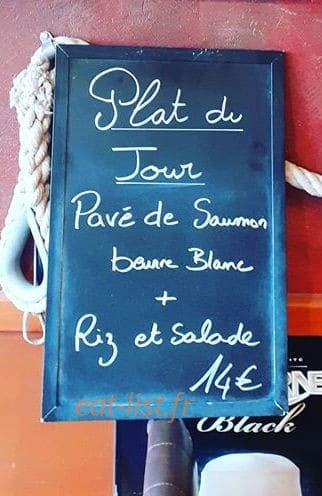 Plat du
Jour
Pavé de Saumon
beurre Blanc
+
Riz et Salade
14€
eat-list.fr
Black